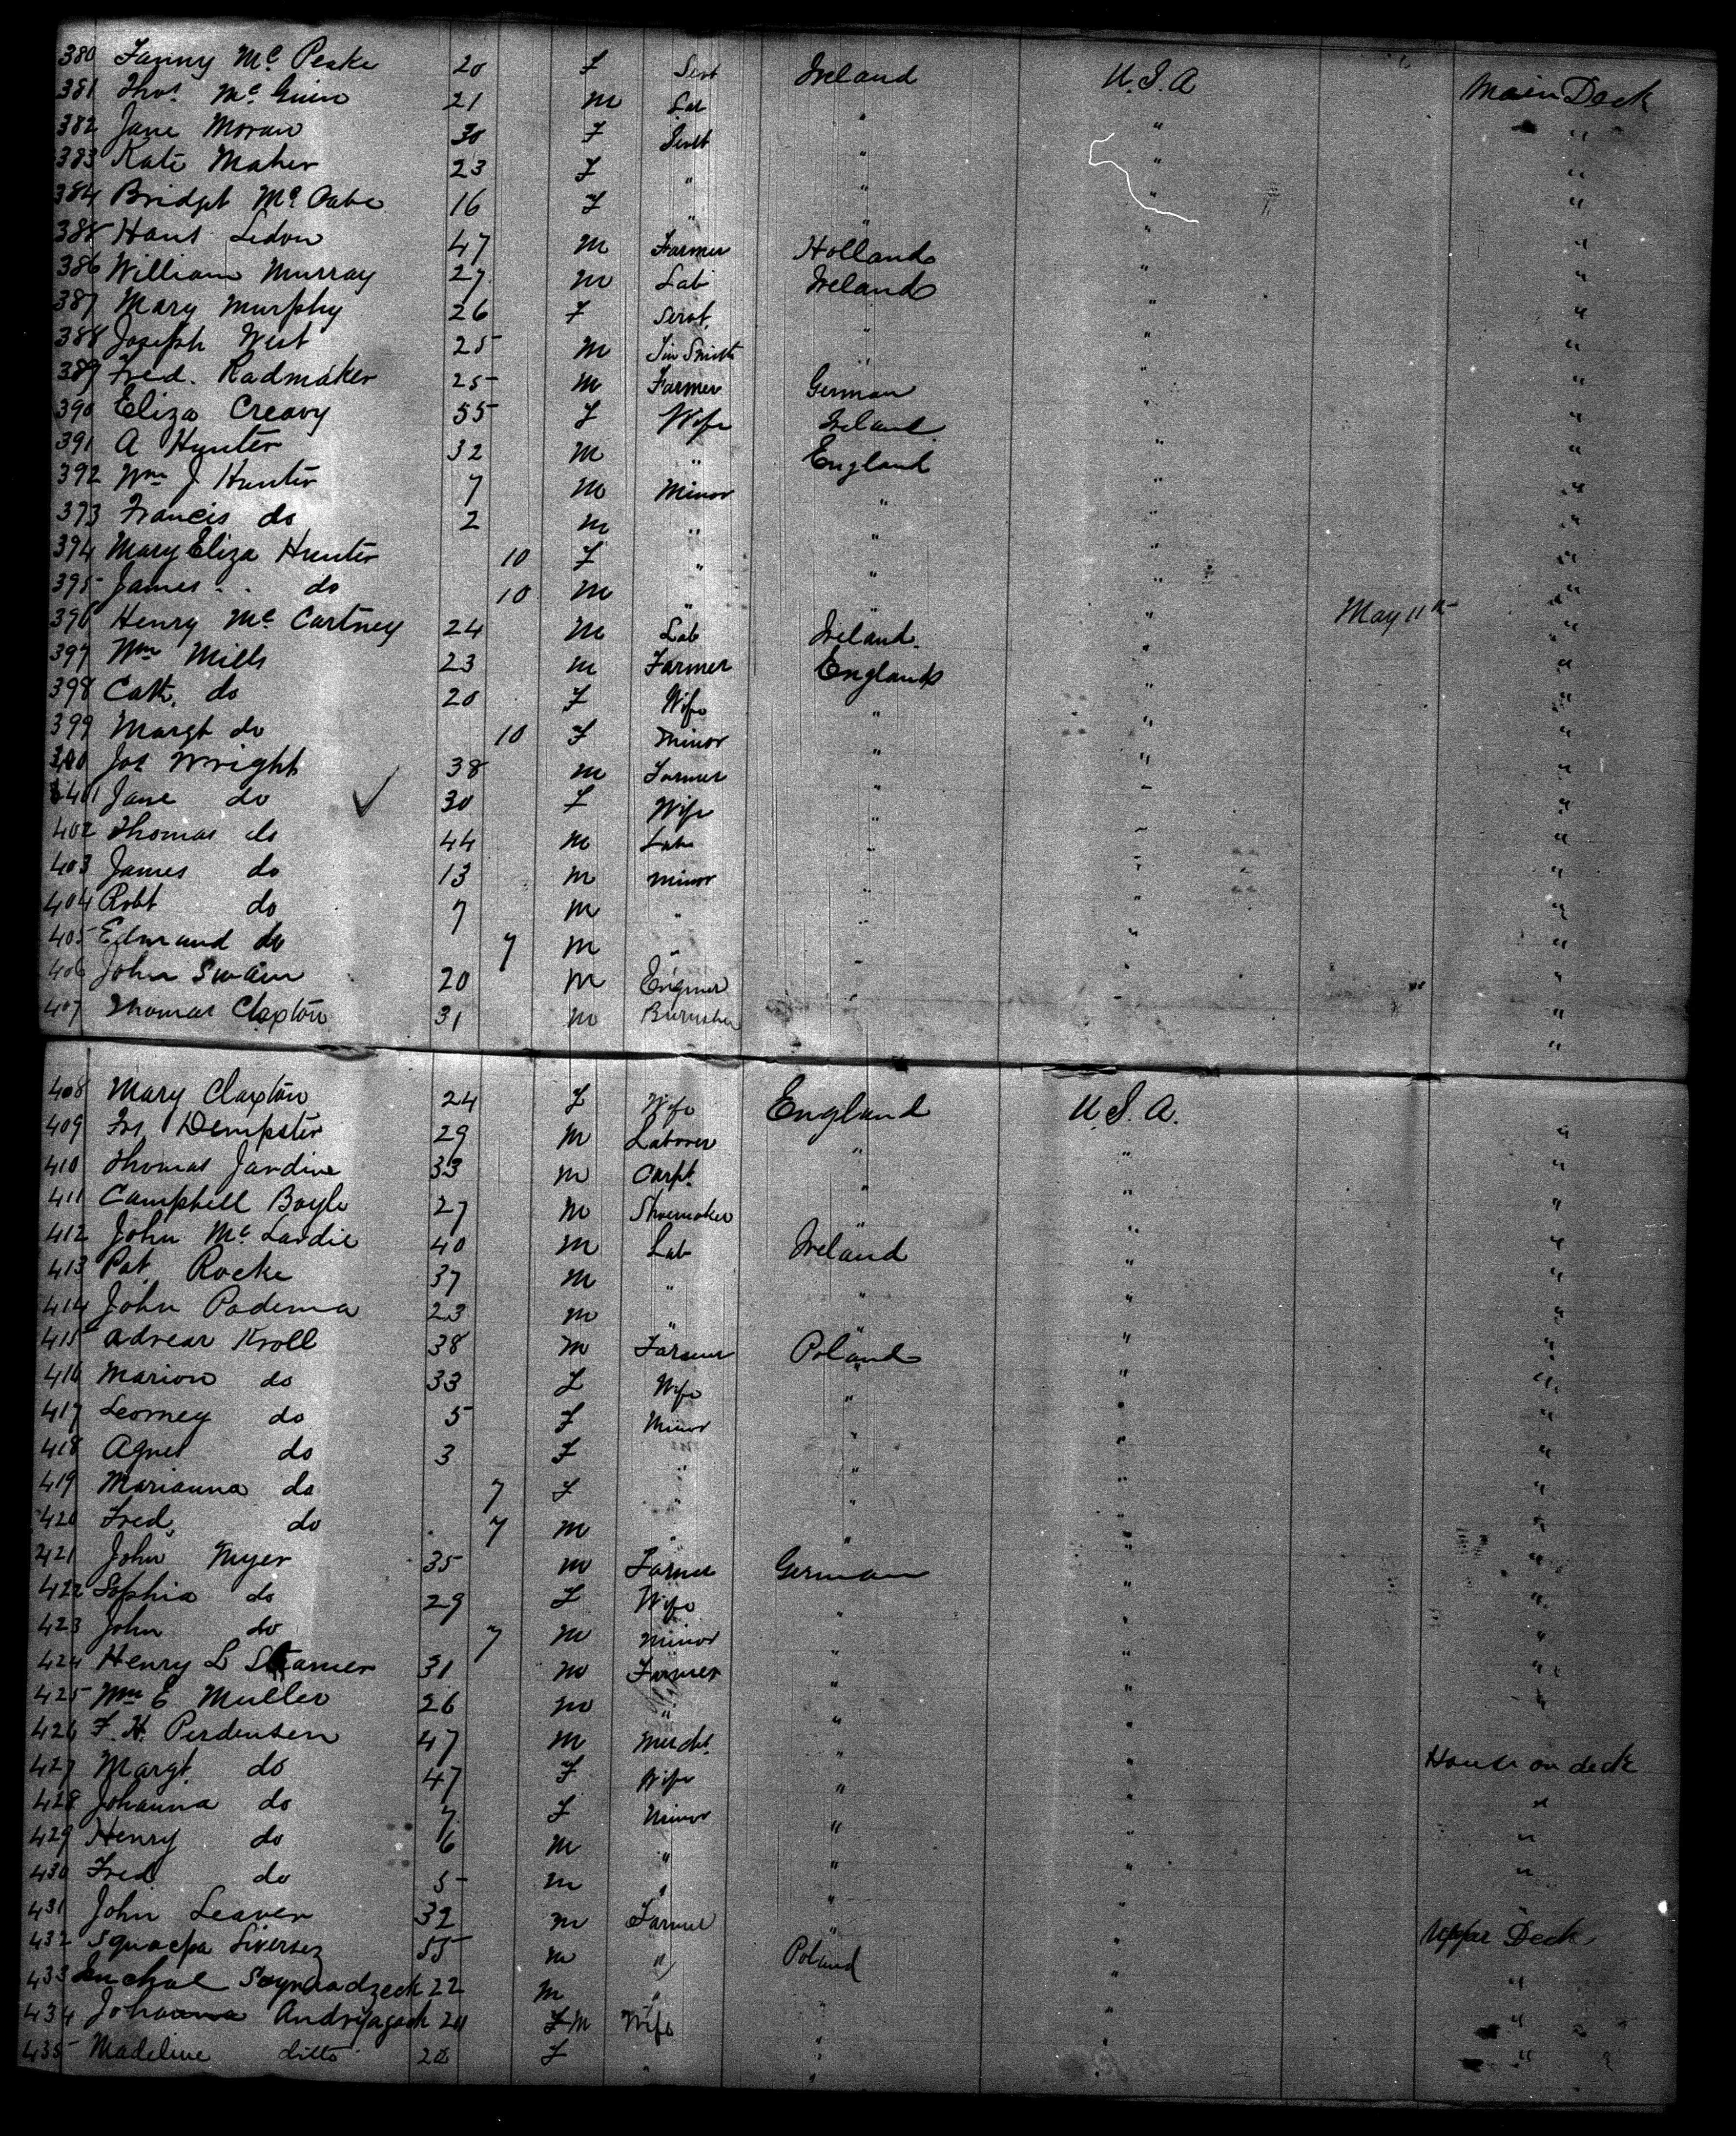 380 Fanny Mc Peake 20 F Servt Ireland U.S.A Main Deck
381 Thos Mc Guin 21 M Lab " " "
382 Jane Moran 30 F Servt " " "
383 Kate Maher 23 F " " " "
384 Bridget Mc Cabe 16 F " " " "
385 Hans Ledon 47 M Farmer Holland " "
386 William Murray 27 M Lab Ireland " "
387 Mary Murphy 26 F Servt. " " "
388 Joseph West 25 M Tin Smith " " "
389 Fred. Radmaker 25 M Farmer German " "
390 Eliza Creavy 55 F Wife Ireland " "
391 A Hunter 32 M " England " "
392 Wm J Hunter 7 M Minor " " "
373 Francis do 2 M " " " "
394 Mary Eliza Hunter 10 F " " " "
395 James do 10 M " " " "
396 Henry Mc Cartney 24 M Lab Ireland. " May 11th "
397 Wm Mills 23 M Farmer England " "
398 Cath. do 20 F Wife " " "
399 Margt do 10 F Minor " " "
400 Jos Wright 38 M Farmer " " "
401 Jane do 30 F Wife " " "
402 Thomas do 44 M Lab " " "
403 James do 13 M Minor " " "
404 Robt do 7 M " " " "
405 Edmund do 7 M " " " "
406 John Swain 20 M Engineer " "
407 Thomas Claxton 31 M Burnisher " "
408 Mary Claxton 24 F Wife England U.S.A.
409 Frs Dempster 29 M Laborer " " "
410 Thomas Jardine 33 M Carpt. " " "
411 Campbell Boyle 27 M Shoemaker " " "
412 John Mc Lardie 40 M Lab Ireland " "
413 Pat. Rocke 37 M " " " "
414 John Podema 23 M " " " "
415 Adrear Kroll 38 M Farmer Poland " "
416 Marion do 33 F Wife " " "
417 Leorney do 5 F Minor " " "
418 Agnes do 3 F " " " "
419 Marianna do 7 F " " " "
420 Fred. do 7 M " " " "
421 John Myer 35 M Farmer German " "
422 Sophia do 29 F Wife " " "
423 John do 7 M Minor " " "
424 Henry L Stamer 31 M Farmer " " "
425 Wm E Muller 26 M " " " "
426 F. H. Perdensen 47 M Mercht. " " House on deck
427 Margt. do 47 F Wife " " "
428 Johanna do 7 F Minor " " "
429 Henry do 6 M " " " "
430 Fred do 5 M " " " "
431 John Leaver 32 M Farmer " " Upper Deck
432 55 M " Poland " "
433 22 M " " " "
434 Johanna 24 F M Wife " " "
435 Madeline ditto F " " "